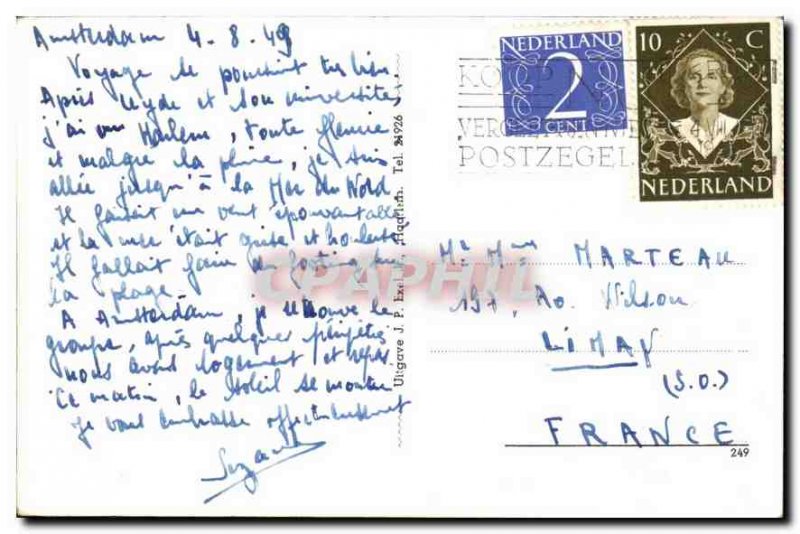 Amsterdam 4.8.49
Voyage se poursuit très bien
Après Leyde et son université,
j'ai vu Harlem, toute fleurie
et malgré la pluie, je suis
allée jusqu'à la Mer du Nord
Il faisait un vent épouvantable
et la mer était grise et houleuse
Il fallait faire du footing sur
la plage.
A Amsterdam, je retrouve le
groupe, après quelques péripéties
nous avons logement et repas
Ce matin, le soleil se montre
Je vous embrasse affectueusement
Suzanne
Uitgave J. P. Exel, Haarlem. Tel. 21926
NEDERLAND
2
CENT
10 C
NEDERLAND
POSTZEGEL
Mr Mme MARTEAU
197, Av. Wilson
LIMAY
(S.O.)
FRANCE
249
CPAPHIL